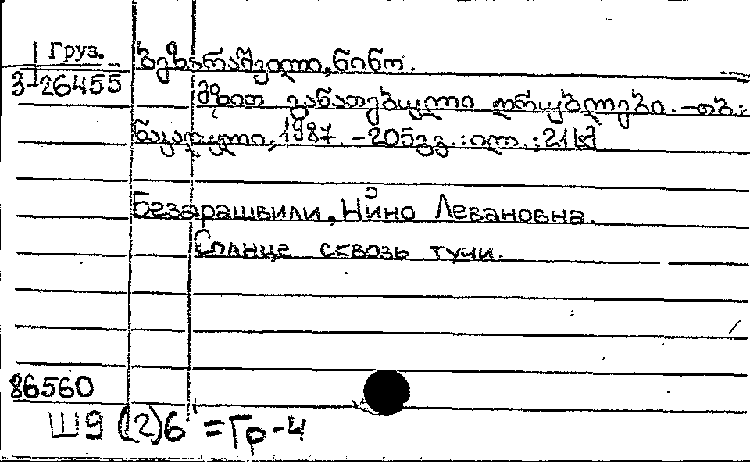 Груз.
3-26455
ბეზარაშვილი, ნინო.
მზით განათებული ღრუბლები. -თბ.:
ნაკადული, 1987. -205გვ.:ილ.;21სმ
Безарашвили, Нино Левановна.
Солнце сквозь тучи.
86560
Ш9 (2)6 =Гр-4